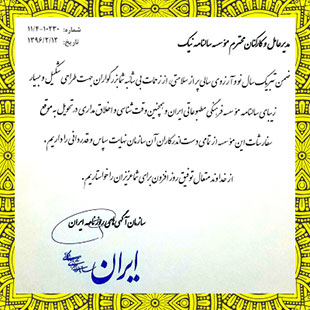 شماره: ۱۱/۴-۱۰۲۳۰
تاریخ: ۱۳۹۶/۲/۱۲
مدیرعامل و کارکنان محترم مؤسسه سالنامه نیک
ضمن تبریک سال نو و آرزوی سالی پر از سلامتی، از زحمات بی شائبه شما بزرگواران جهت طراحی شکیل و بسیار
زیبای سالنامه مؤسسه فرهنگی مطبوعاتی ایران و همچنین وقت شناسی و اخلاق مداری در تحویل به موقع
سفارشات این مؤسسه از تمامی دست اندرکاران آن سازمان نهایت سپاس و قدردانی را داریم.
از خداوند متعال توفیق روز افزون برای شما عزیزان را خواستاریم.
سازمان آگهی های روزنامه ایران
ایران